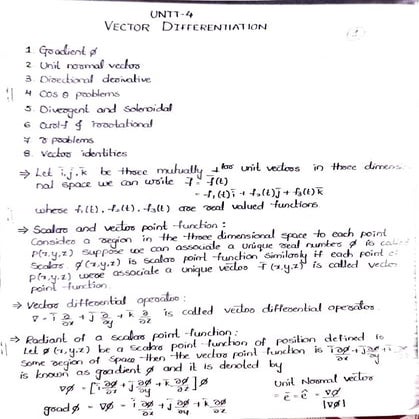 UNIT-4
VECTOR DIFFERENTIATION
1 Gradient ø
2 Unit normal vector
3. Directional derivative
4 Cos θ problems
5. Divergent and Solenoidal
6 curl f & irrotational
7 r problems
8. Vector identities
⇒ Let i, j, k be three mutually ⊥lar unit vectors in three dimensi-
nal space we can write f̄ = f̄(t)
= f₁(t)ī + f₂(t)j̄ + f₃(t)k̄
where f₁(t), f₂(t), f₃(t) are real valued functions
⇒ Scalar and vector point-function :
Consider a region in the three dimensional space to each point
P(x,y,z) suppose we can associate a unique real number ø is
Scalar. ø(x,y,z) is scalar point function similarly if each point
P(x,y,z) were associate a unique vector f̄(x,y,z) is called vector
point-function
⇒ Vector differential operator :
∇ = ī ∂/∂x + j̄ ∂/∂y + k̄ ∂/∂z is called vector differential operator.
⇒ Radiant of a scalar point-function :
Let ø(x,y,z) be a scalar point function of position defined in
some region of space then the vector point function is ī ∂ø/∂x + j̄ ∂ø/∂y +
is known as gradient ø and it is denoted by
∇ø = [ī ∂/∂x + j̄ ∂/∂y + k̄ ∂/∂z] ø
grad ø = ∇ø = ī ∂ø/∂x + j̄ ∂ø/∂y + k̄ ∂ø/∂z
Unit Normal vector
= ē = ê = ∇ø/|∇ø|